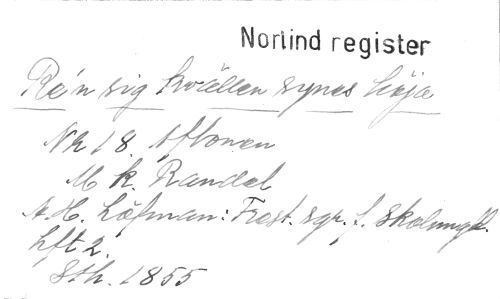 Norlind register
Re'n sig kvällen synes höja
Nr 18. Aftonen
M k. Randel
A. H. Löfman: Frest. sgr. f. skolungd.
hft 2.
Sth. 1855